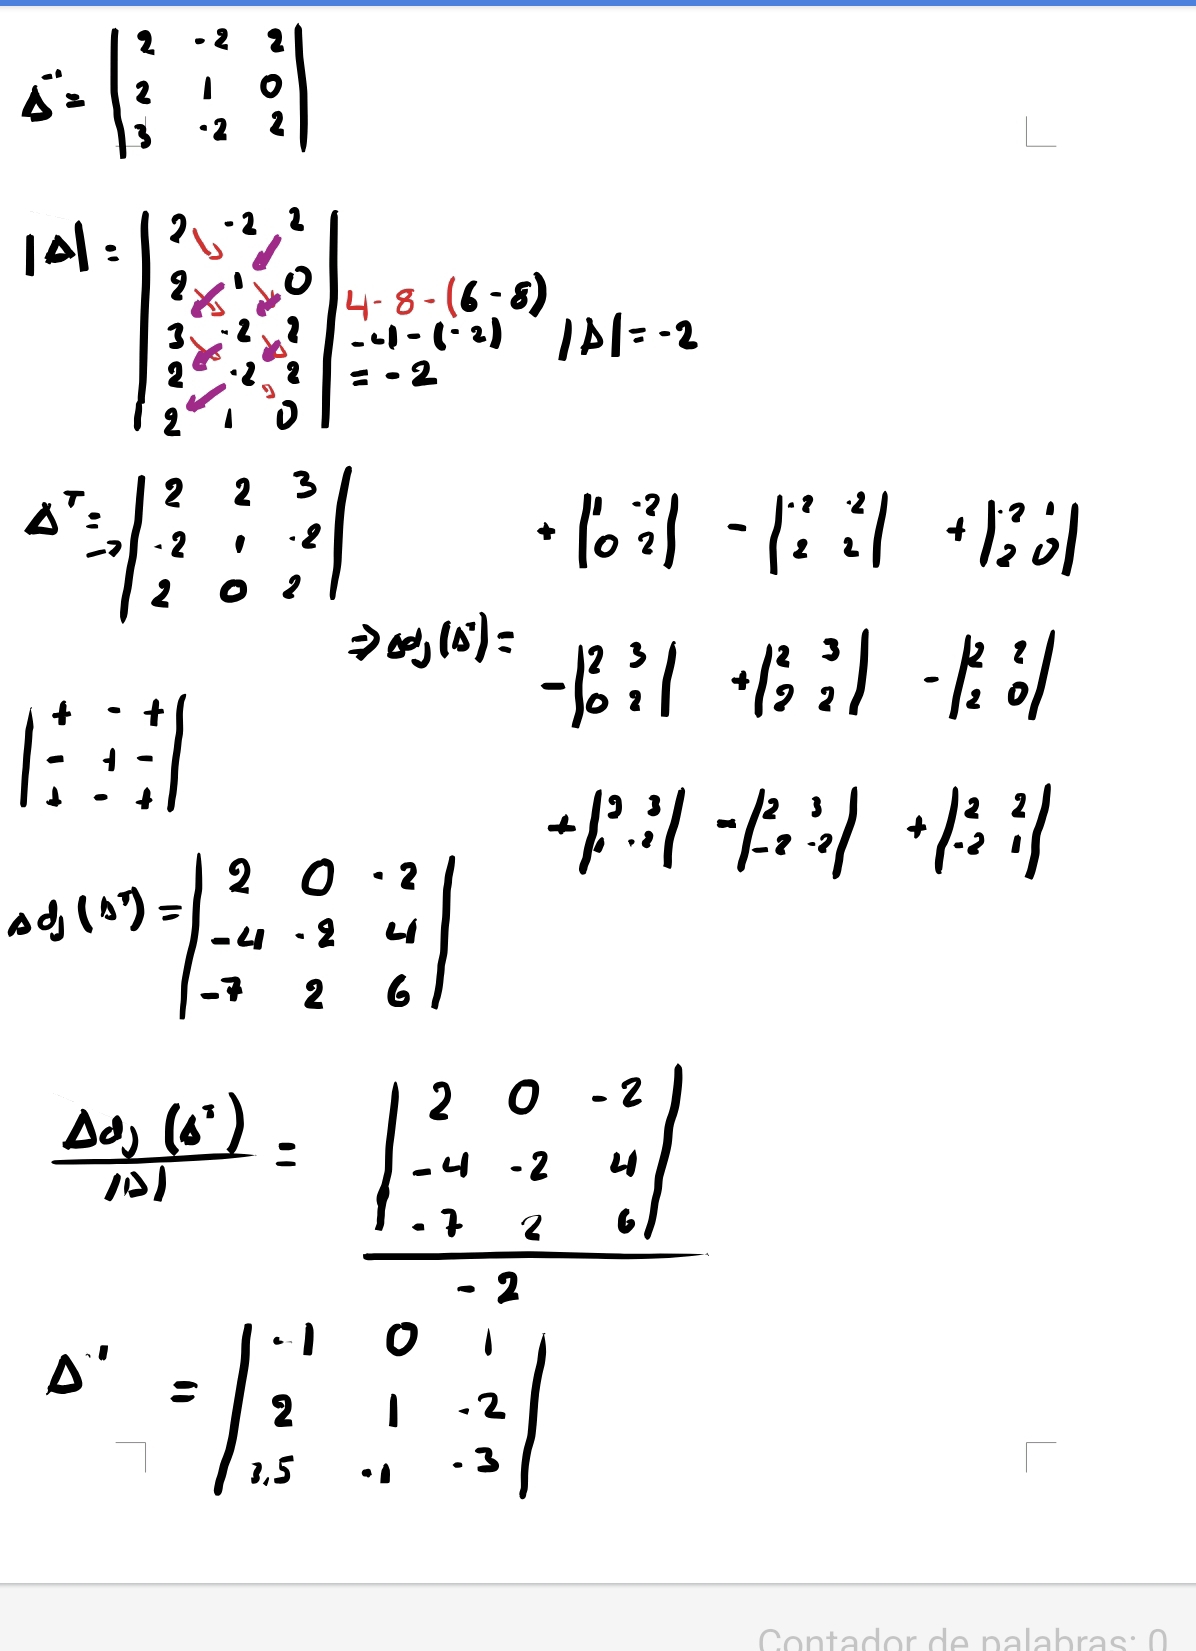 A⁻¹ = | 2 -2 2 |
| 2 1 0 |
| 3 -2 2 |
|A| = | 2 -2 2 |
| 2 1 0 |
| 3 -2 2 |
| 2 -2 2 |
| 2 1 0 |
4-8-(6-8)
-4-(-2)
= -2
|A| = -2
Aᵀ = → | 2 2 3 |
| -2 1 -2 |
| 2 0 2 |
⇒ adj(Aᵀ) =
+ | 1 -2 | - | -2 -2 | + | -2 1 |
| 0 2 | | 2 2 | | 2 0 |
- | 2 3 | + | 2 3 | - | 2 2 |
| 0 2 | | 2 2 | | 2 0 |
+ | 2 3 | - | 2 3 | + | 2 2 |
| 1 -2 | | -2 -2 | | -2 1 |
| + - + |
| - + - |
| + - + |
adj(Aᵀ) = | 2 0 -2 |
| -4 -2 4 |
| -7 2 6 |
Adj(Aᵀ) / |A| = | 2 0 -2 |
| -4 -2 4 |
| -7 2 6 |
-2
A⁻¹ = | -1 0 1 |
| 2 1 -2 |
| 3,5 -1 -3 |
Contador de palabras: 0